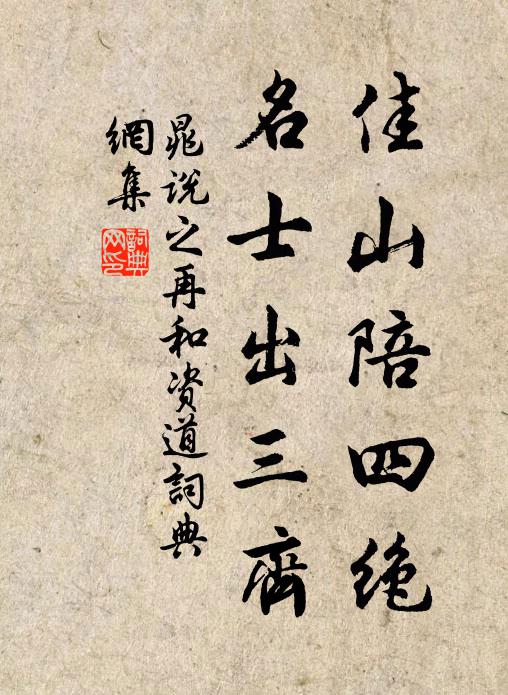 佳山陪四絶
名士出三齊
晁說之再和资道詞典
網集
詞典
网印